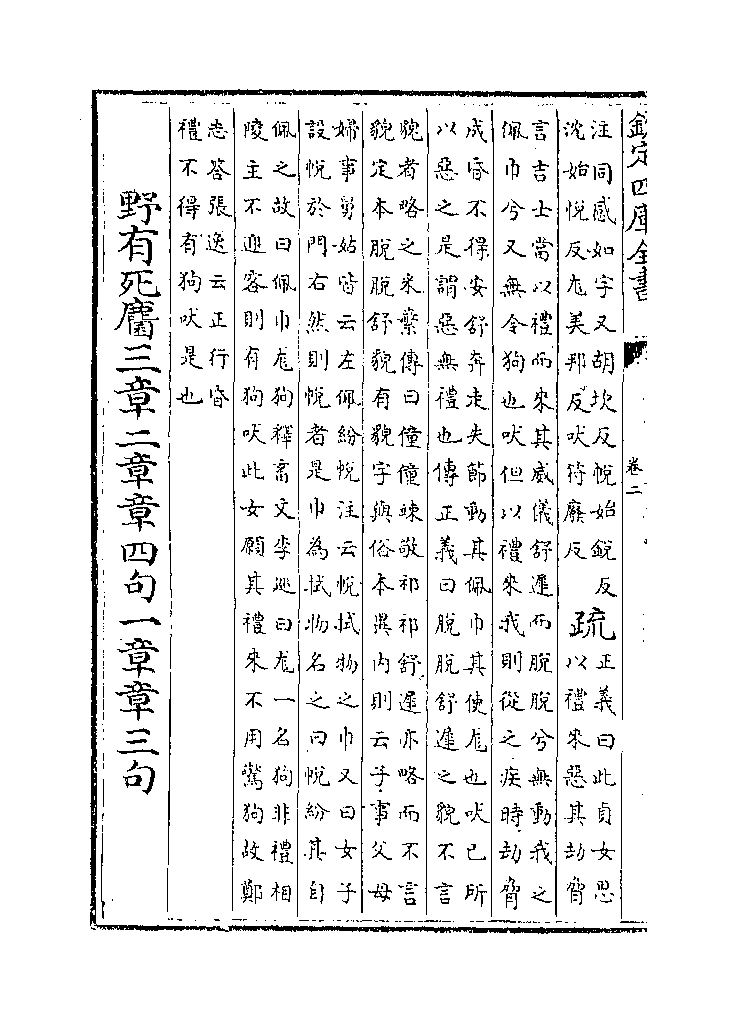 欽定四庫全書
卷二
注同感如字又胡坎反帨始銳反
沈始悅反尨美邦反吠符廢反
疏
正義曰此貞女思
以禮來惡其劫脅
言吉士當以禮而來其威儀舒遲而脫脫兮無動我之
佩巾兮又無令狗也吠但以禮來我則從之疾時劫脅
成昏不得安舒奔走失節動其佩巾其使尨也吠已所
以惡之是謂惡無禮也傳正義曰脫脫舒遲之貌不言
貌者略之采蘩傳曰僮僮竦敬祁祁舒遲亦略而不言
貌定本脫脫舒貌有貌字與俗本異內則云子事父母
婦事舅姑皆云左佩紛帨注云帨拭物之巾又曰女子
設帨於門右然則帨者是巾為拭物名之曰帨紛其自
佩之故曰佩巾尨狗釋畜文李巡曰尨一名狗非禮相
陵主不迎客則有狗吠此女願其禮來不用驚狗故鄭
志答張逸云正行昏
禮不得有狗吠是也
野有死麕三章二章章四句一章章三句